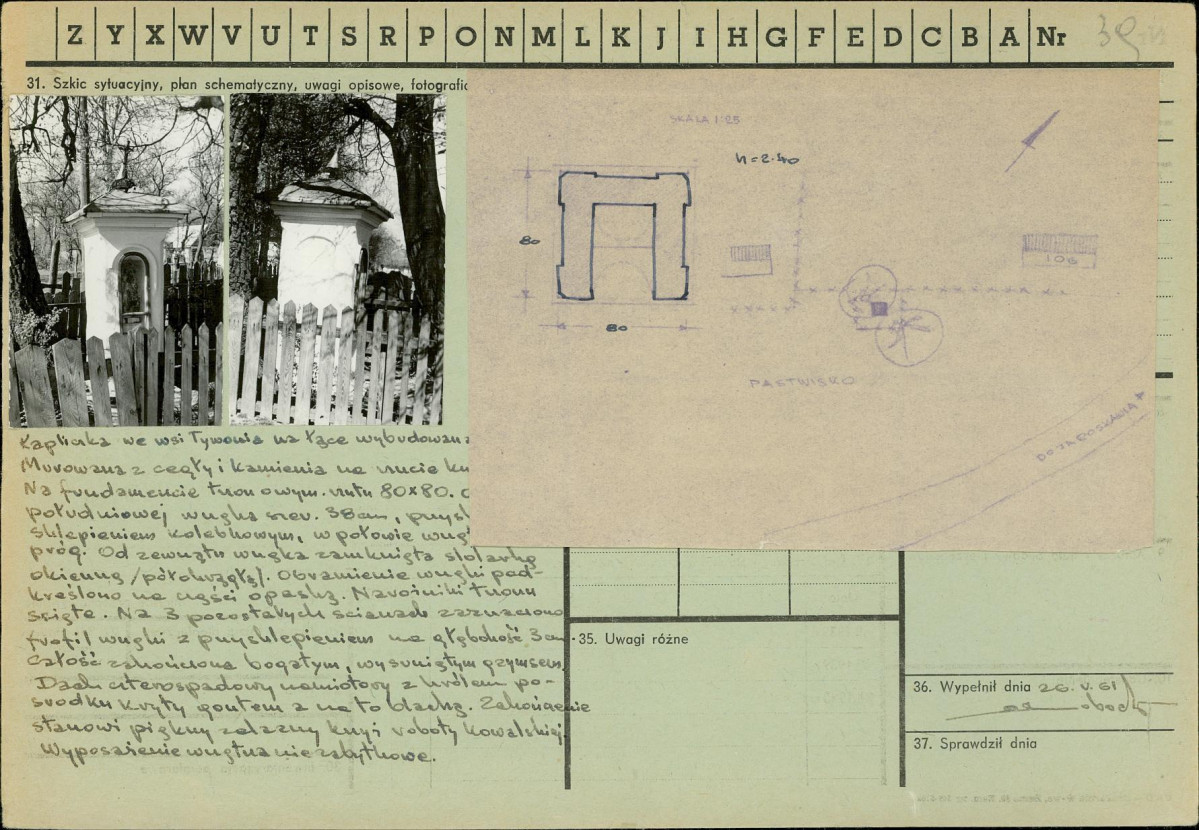 Z Y X W V U T S R P O N M L K J I H G F E D C B A Nr 39
31. Szkic sytuacyjny, plan schematyczny, uwagi opisowe, fotografia
SKALA 1:25
h=2.40
80
80
106
PASTWISKO
DO JAROSŁAWIA
Kapliczka we wsi Tywonia na łące wybudowana
Murowana z cegły i kamienia na rzucie
Na fundamencie rzutu 80x80.
południowej wnęka szer. 38cm,
sklepieniem kolebkowym, w połowie
próg. Od zewnątrz wnęka zamknięta stolarką
okienną /półokrągłą/. Obramienie wnęki pod-
kreślono na części opaską. Narożniki
ścięte. Na 3 pozostałych ścianach zaznaczono
profil wnęki z przysklepieniem na głębokość 3cm
Całość zakończona bogatym, wysuniętym gzymsem,
Dach czterospadowy namiotowy z królem po-
środku kryty gontem a na to blachą. Zakończenie
stanowi piękny żelazny krzyż roboty kowalskiej.
Wyposażenie wnętrza nie zabytkowe.
35. Uwagi różne
36. Wypełnił dnia 26.V.61
37. Sprawdził dnia